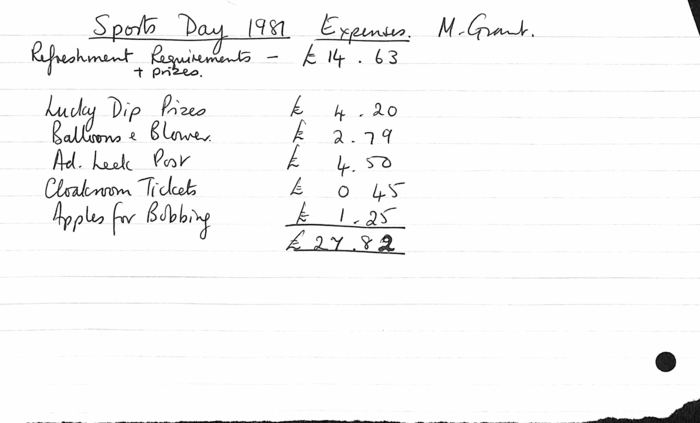 Sports Day 1981 Expenses. M. Grant.
Refreshment Requirements - £14.63
+ prizes.
Lucky Dip Prizes £ 4.20
Balloons & Blower. £ 2.79
Ad. Leek Post £ 4.50
Cloakroom Tickets £ 0 45
Apples for Bobbing £ 1.25
£27.82